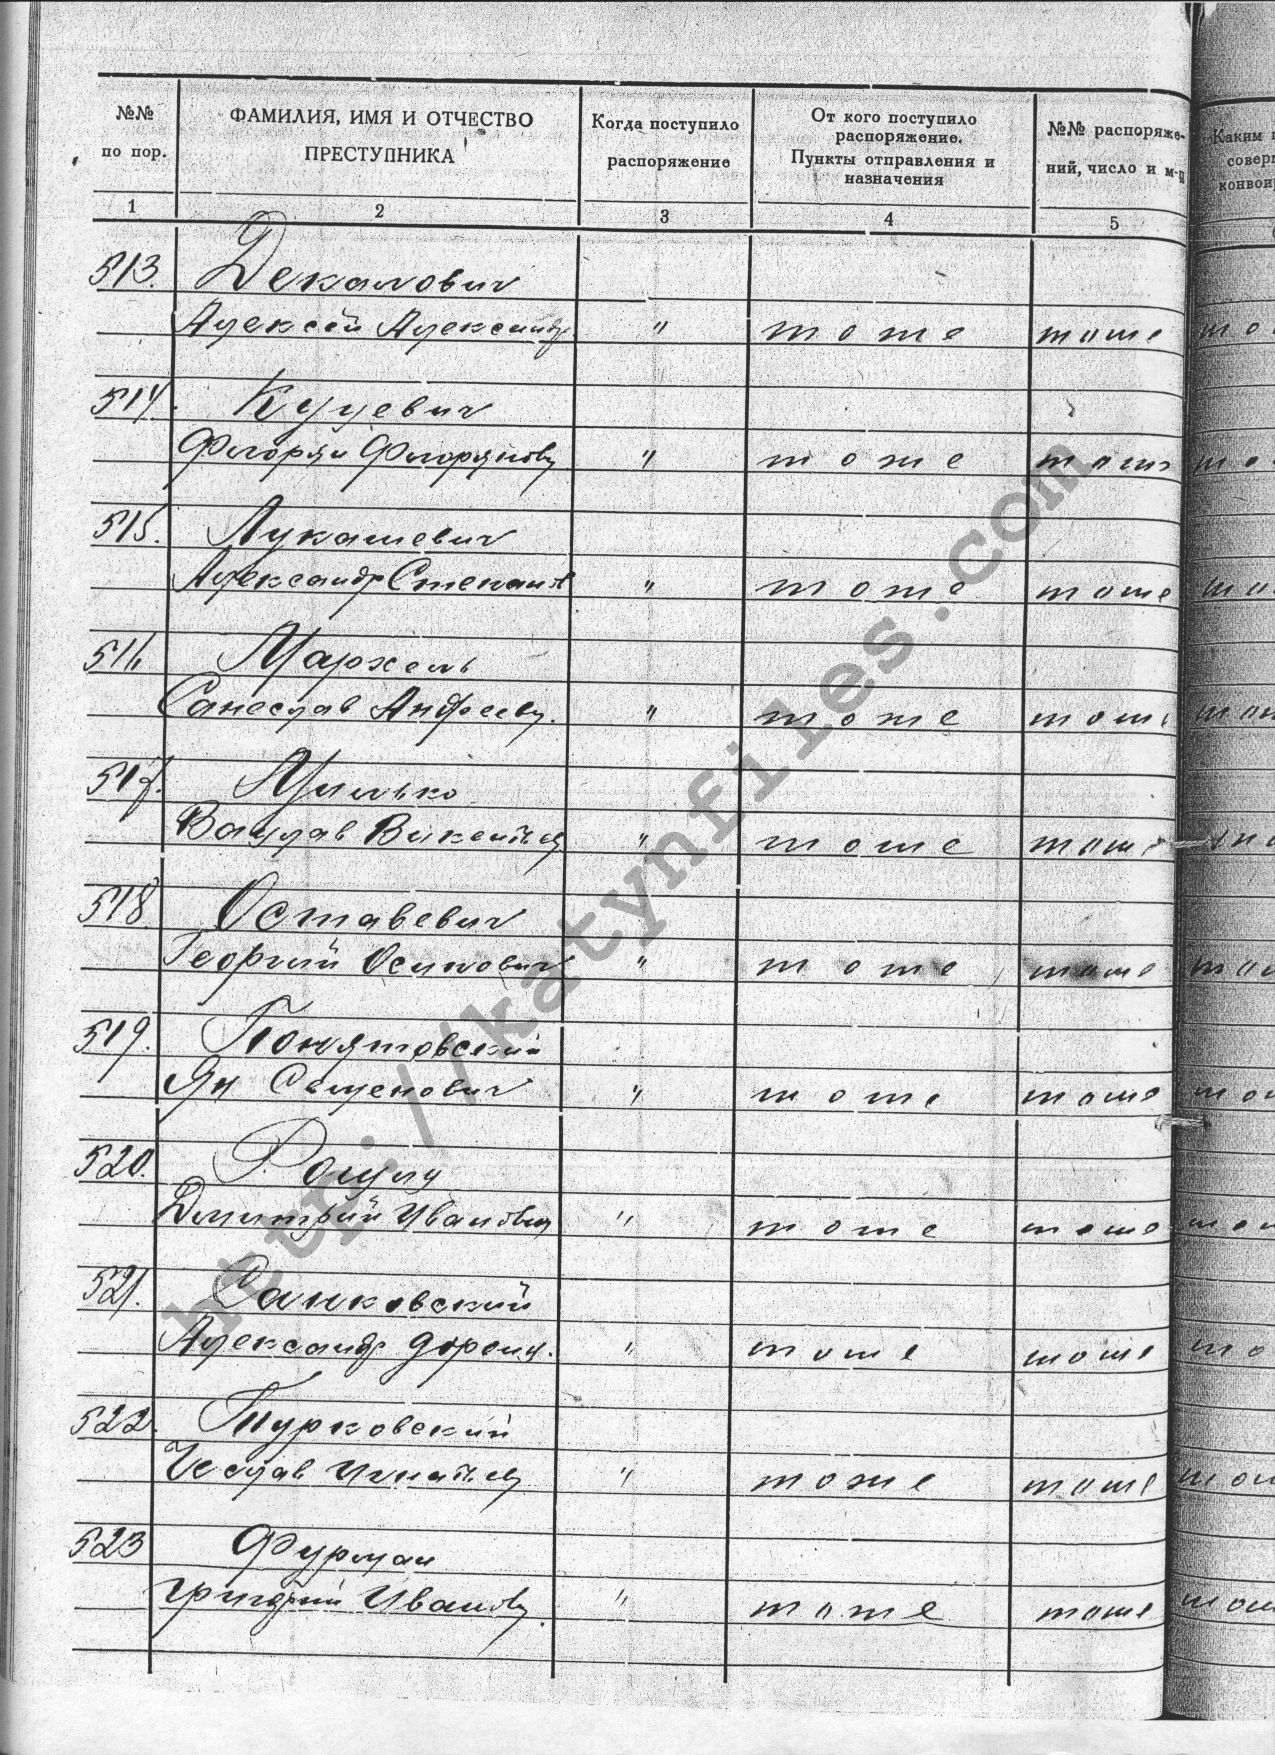 №№ по пор.
ФАМИЛИЯ, ИМЯ И ОТЧЕСТВО ПРЕСТУПНИКА
Когда поступило распоряжение
От кого поступило распоряжение. Пункты отправления и назначения
№№ распоряжений, число и м-ц
Каким
конвои
1 2 3 4 5
513. Декалович
Алексей Александр " тоже тоже то
514. Куцевич
Флорян Флорянов " тоже тоже то
515. Лукашевич
Александр Степанов " тоже тоже то
516 Мархель
Санеслав Андреев. " тоже тоже то
517. Милько
Вацлав Викентьев " тоже тоже
518. Оставевич
Георгий Осипович " тоже тоже то
519. Понятовский
Ян Семенович " тоже тоже то
520.
Дмитрий Иванович " тоже тоже то
521. Санковский
Александр " тоже тоже то
522. Турковский
Чеслав Игнатьев " тоже тоже то
523 Фурман
Григорий Иванов. " тоже тоже то
http://katynfiles.com